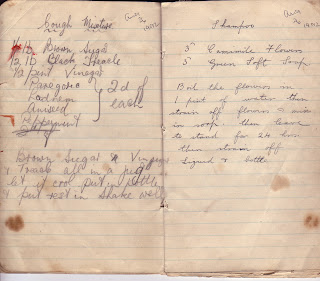 Cough Mixture
1/2 lb Brown Suger
1/2 lb Black Treacle
1/2 pint Vinegar
Paregoric
Aniseed
2d of
each
Brown Suger & Vinegar
all in a jug
let it cool put in bottle
& put rest in shake well
Shampoo
Camimile Flowers
Green Soft Soap
Boil the flowers in
1 pint of water then
strain off flowers &
in soap then leave
to stand for 24 hrs
then strain off
liquid & bottle